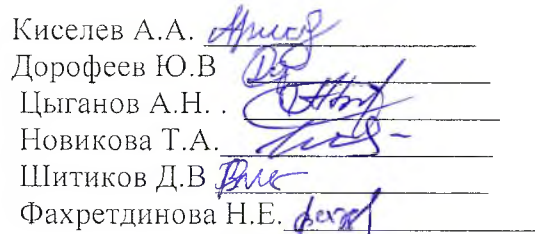 Киселев А.А.
Дорофеев Ю.В
Цыганов А.Н. .
Новикова Т.А.
Шитиков Д.В
Фахретдинова Н.Е.